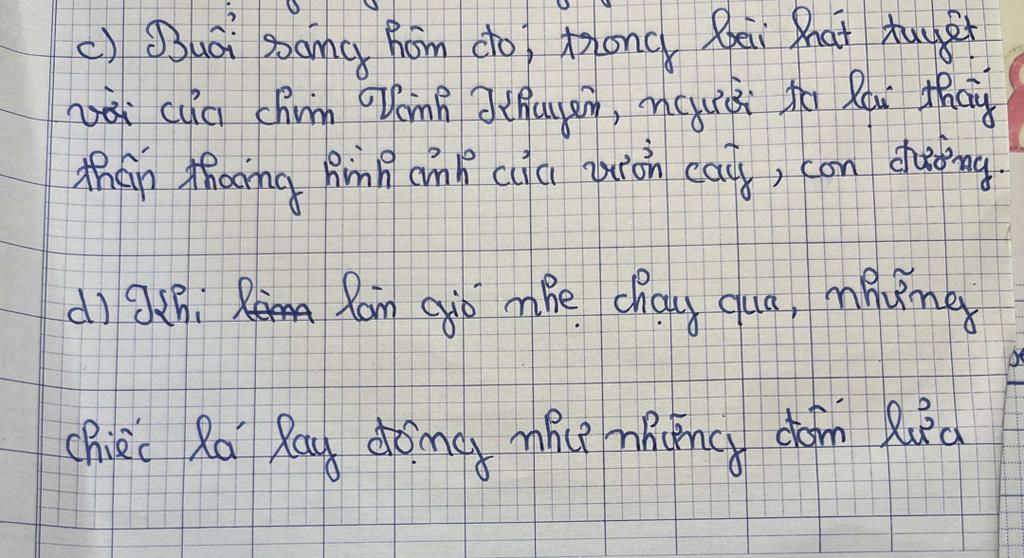 c) Buổi sáng hôm đó, trong bài hát tuyệt
vời của chim Vành Khuyên, người ta lại thấy
thấp thoáng hình ảnh của vườn cây, con đường.
d) Khi làn gió nhẹ chạy qua, những
chiếc lá lay động như những đốm lửa